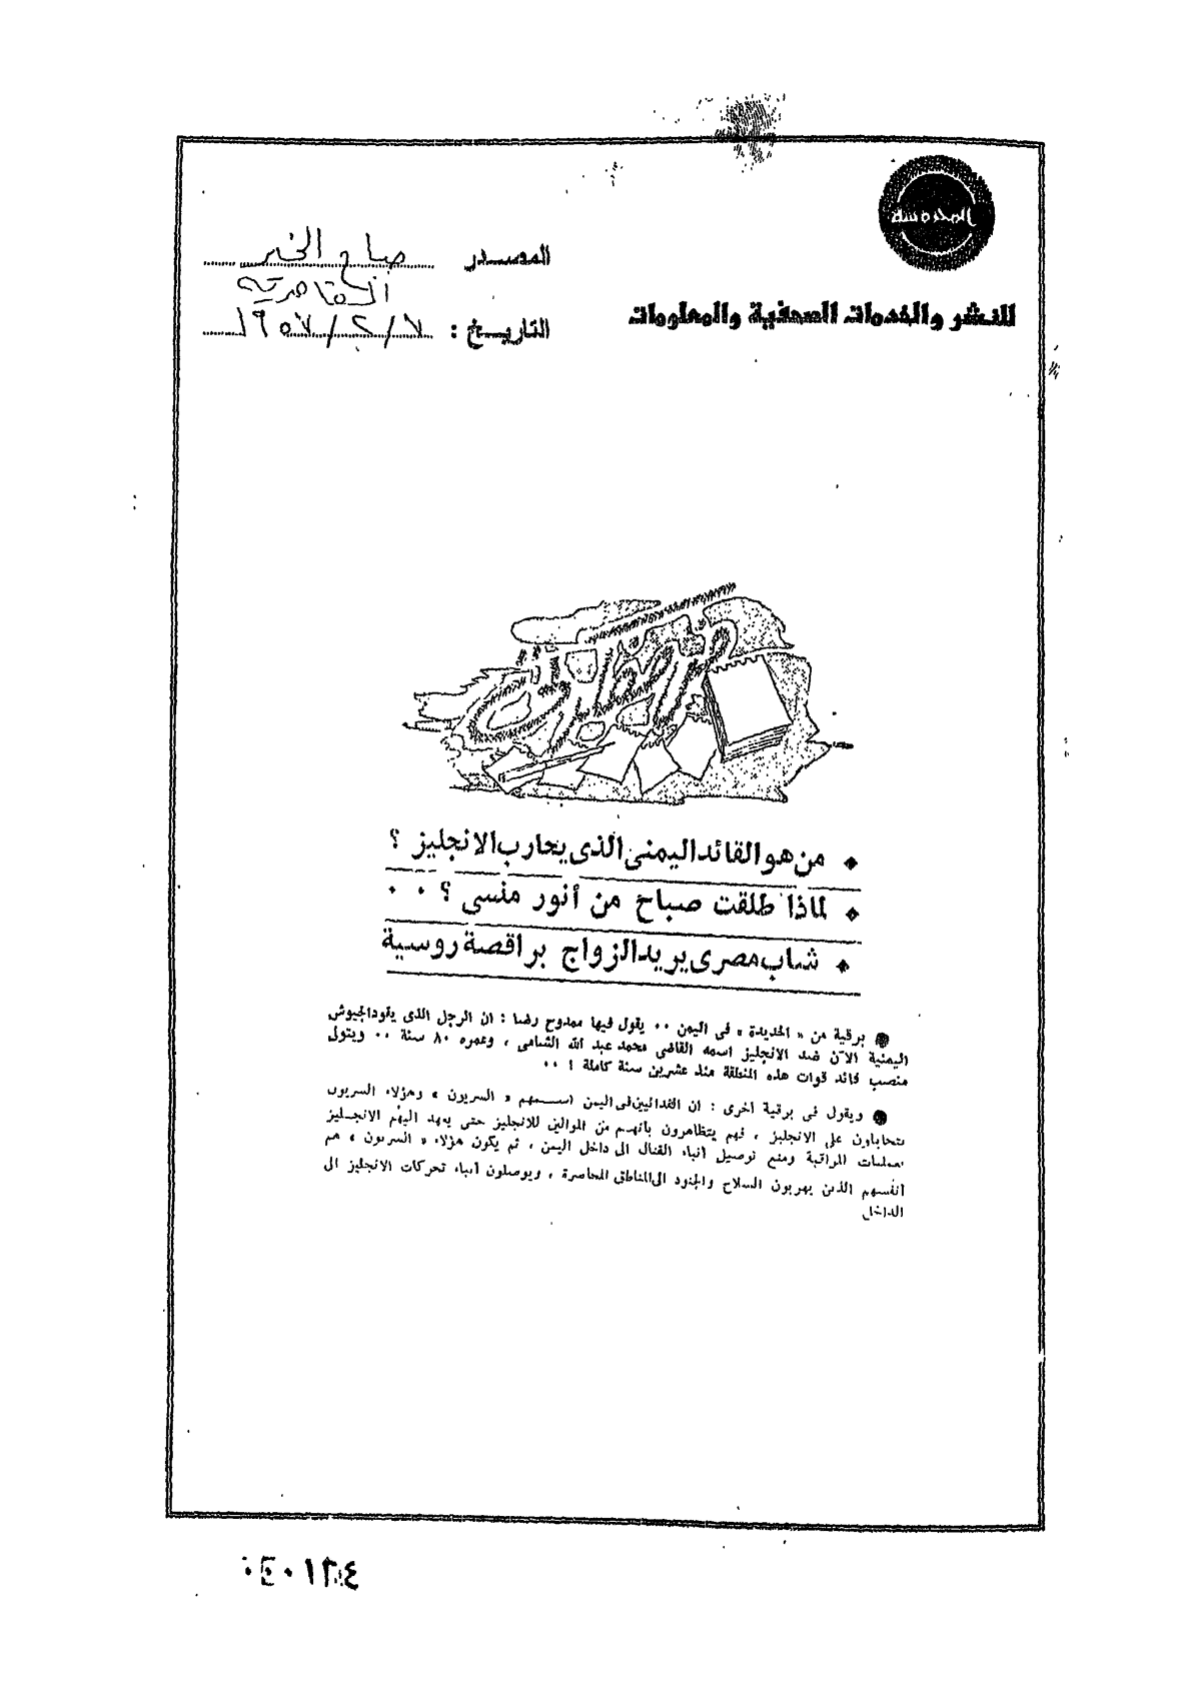 المحروسة
للنشر والخدمات الصحفية والمعلومات
المصدر صباح الخير
القاهرية
التاريخ : ٧/٢/١٩٥٧
♦ من هو القائد اليمنى الذى يحارب الانجليز ؟
♦ لماذا طلقت صباح من أنور منسى ؟ ٠٠
♦ شاب مصرى يريد الزواج براقصة روسية
● برقية من « الحديدة » فى اليمن ٠٠ يقول فيها ممدوح رضا : ان الرجل الذى يقود الجيوش
اليمنية الآن ضد الانجليز اسمه القاضى محمد عبد الله الشامى ، وعمره ٨٠ سنة ٠٠ ويتولى
منصب قائد قوات هذه المنطقة منذ عشرين سنة كاملة ! ٠٠
● ويقول فى برقية أخرى : ان الفدائيين فى اليمن اسمهم « السريون » وهؤلاء السريون
يتحايلون على الانجليز ، فهم يتظاهرون بأنهم من الموالين للانجليز حتى يعهد اليهم الانجليز
بعمليات المراقبة ومنع توصيل أنباء القتال الى داخل اليمن ، ثم يكون هؤلاء « السريون » هم
أنفسهم الذين يهربون السلاح والجنود الى المناطق المحاصرة ، ويوصلون أنباء تحركات الانجليز الى
الداخل